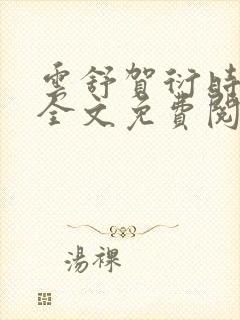 雲舒賀衍時
全文免費閱
湯裸